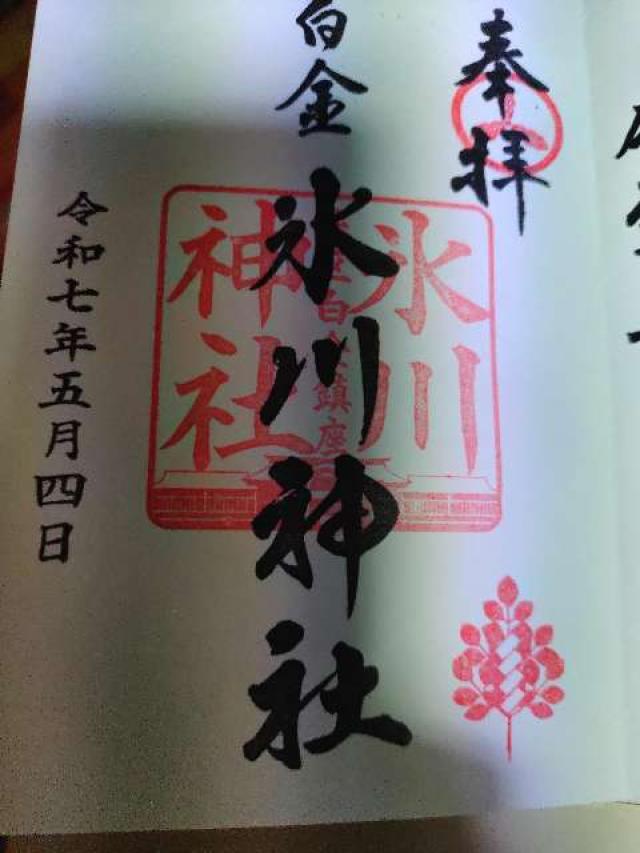 奉拝
白金
氷川神社
氷川
神社
白金鎮座
令和七年五月四日